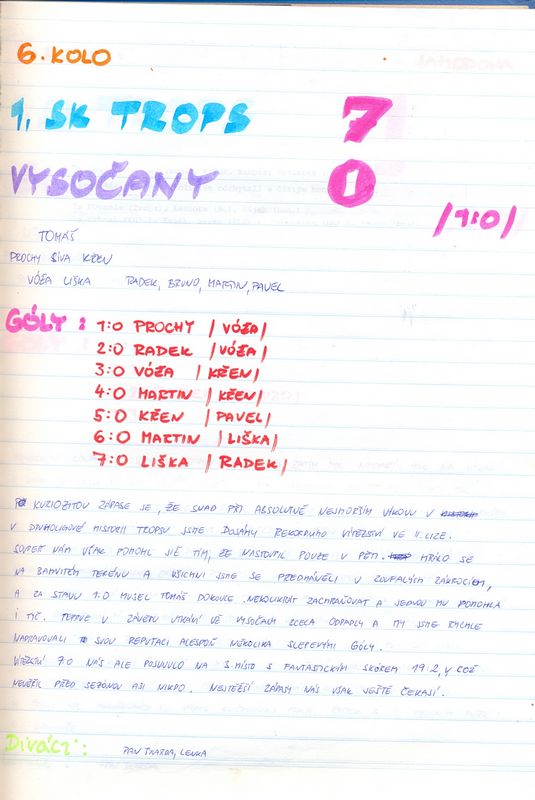 6. KOLO
1. SK TROPS 7
VYSOČANY 1
/1:0/
TOMÁŠ
PROCHY SÍVA KŘEN
VÓŽA LIŠKA RADEK, BRUNO, MARTIN, PAVEL
GÓLY: 1:0 PROCHY /VÓŽA/
2:0 RADEK /VÓŽA/
3:0 VÓŽA /KŘEN/
4:0 MARTIN /KŘEN/
5:0 KŘEN /PAVEL/
6:0 MARTIN /LIŠKA/
7:0 LIŠKA /RADEK/
KURIOZITOU ZÁPASE JE, ŽE SNAD PŘI ABSOLUTNĚ NEJHORŠÍM VÝKONU V
V DRUHOLIGOVÉ HISTORII TROPSU JSME DOSÁHLI REKORDNÍHO VÍTĚZSTVÍ VE II. LIZE.
SOUPEŘ NÁM VŠAK POMOHL JIŽ TÍM, ŽE NASTOUPIL POUZE V PĚTI. HRÁLO SE
NA BAHNITÉM TERÉNU A VŠICHNI JSME SE PŘEDHÁNĚLI V ZOUFALÝCH ZÁKROCÍCH,
A ZA STAVU 1:0 MUSEL TOMÁŠ DOKONCE NĚKOLIKRÁT ZACHRAŇOVAT A JEDNOU MU POMOHLA
I TYČ. TEPRVE V ZÁVĚRU UTKÁNÍ UŽ VYSOČANY ZCELA ODPADLY A MY JSME RYCHLE
NAPRAVOVALI SVOU REPUTACI ALESPOŇ NĚKOLIKA SLEPENÝMI GÓLY.
VÍTĚZSTVÍ 7:0 NÁS ALE POSUNULO NA 3. MÍSTO S FANTASTICKÝM SKÓREM 19:2, V COŽ
NEVĚŘIL PŘED SEZÓNOU ASI NIKDO. NEJTĚŽŠÍ ZÁPASY NÁS VŠAK JEŠTĚ ČEKAJÍ.
Diváci: PAN TKADLA, LENKA